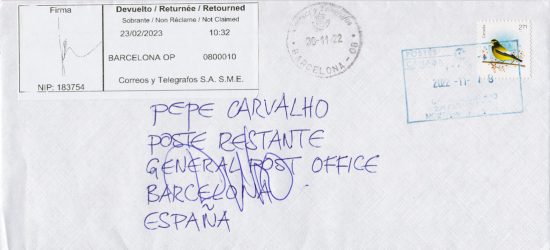 Firma
Devuelto / Returnée / Retourned
Sobrante / Non Réclame / Not Claimed
23/02/2023 10:32
BARCELONA OP 0800010
Correos y Telegrafos S.A. S.M.E.
NIP: 183754
26-11-22
BARCELONA - OB
Canada
2022-11-
PEPE CARVALHO
POSTE RESTANTE
GENERAL POST OFFICE
BARCELONA
ESPAÑA